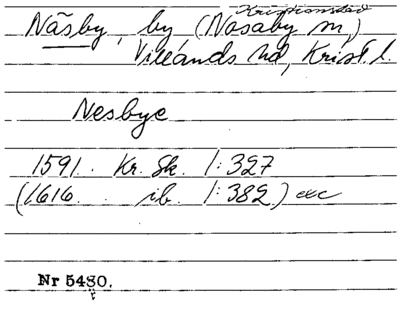 Kristianstad
Näsby, by (Nosaby sn,)
Villands hd, Krist. l.
Nesbye
1591. Kr. Sk. 1:327
(1616. ib. 1:382) etc
Nr 5480.